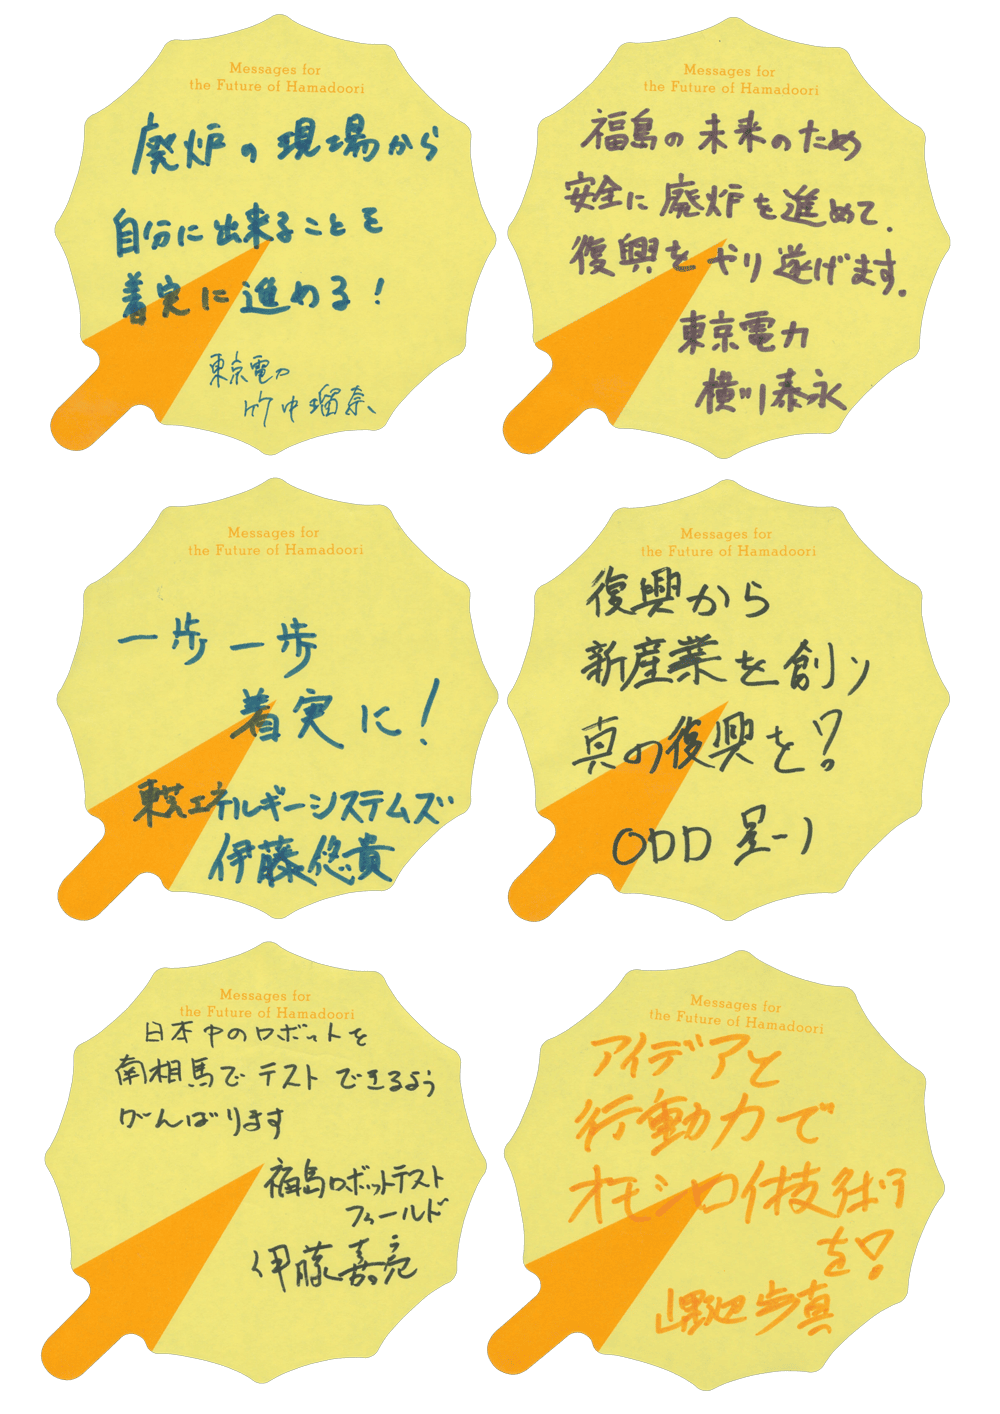 Messages for
the Future of Hamadoori
廃炉の現場から
自分に出来ることを
着実に進める!
東京電力
竹中瑠奈
Messages for
the Future of Hamadoori
福島の未来のため
安全に廃炉を進めて.
復興をやり遂げます.
東京電力
横川泰永
Messages for
the Future of Hamadoori
一歩一歩
着実に!
東芝エネルギーシステムズ
伊藤悠貴
Messages for
the Future of Hamadoori
復興から
新産業を創り
真の復興を!
ODD 星一
Messages for
the Future of Hamadoori
日本中のロボットを
南相馬でテストできるよう
がんばります
福島ロボットテスト
フィールド
伊藤嘉亮
Messages for
the Future of Hamadoori
アイデアと
行動力で
オモシロイ技術
を!
歩真